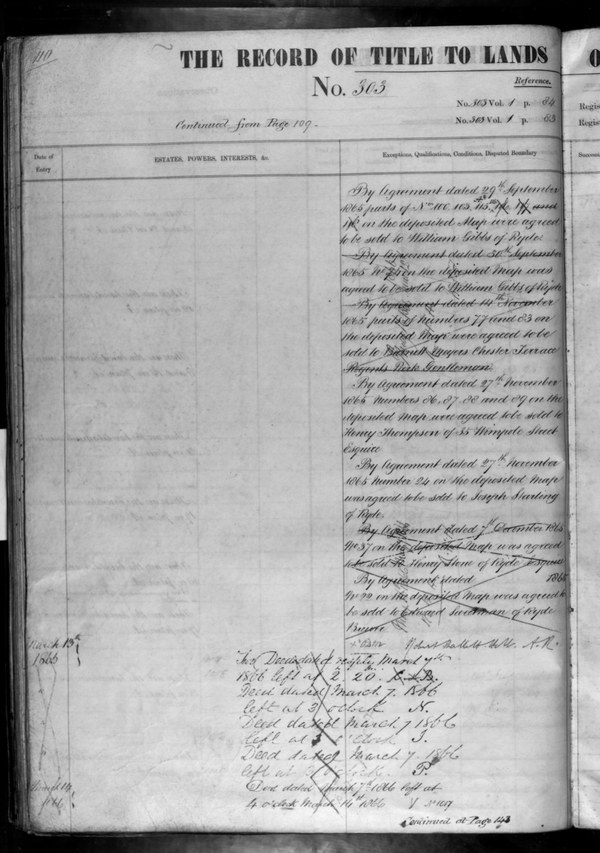 110
THE RECORD OF TITLE TO LANDS
No. 303
Reference.
No. 303 Vol. 1 p. 84
No. 303 Vol. 1 p. 83
Continued from Page 109
Date of Entry
ESTATES, POWERS, INTERESTS, &c.
Exceptions, Qualifications, Conditions, Disputed Boundary
By Agreement dated 29th September
1865 parts of Nos 100. 103.
on the deposited Map were agreed
to be sold to William Gibbs of Ryde.
By Agreement dated 30th September
1865 No 24 on the deposited map was
agreed to be sold to William Gibbs of Ryde
By Agreement dated 14th November
1865 parts of numbers 77 and 83 on
the deposited Map were agreed to be
sold to Barnett Meyers Chester Terrace
Regents Park Gentleman.
By Agreement dated 27th November
1865 numbers 86. 87. 88 and 89 on the
deposited Map were agreed to be sold to
Henry Thompson of 35 Wimpole Street
Esquire
By Agreement dated 27th November
1865 number 24 on the deposited Map
was agreed to be sold to Joseph Starling
of Ryde.
By Agreement dated 7th December 1865
No 37 on the deposited Map was agreed
to be sold to Henry Stone of Ryde Esquire
By Agreement dated 1865
No 22 on the deposited Map was agreed to
be sold to Edward of Ryde
March 13th
1866
Two Deeds dated respectively March 7th
1866 left at 2. 20.
Deed dated March 7. 1866
left at 3 o'clock N.
Deed dated March 7 1866
left at 3 o'clock
Deed dated March 7. 1866
left at o'clock P.
March 14
1866
Deed dated March 7th 1866 left at
4 o'clock March 14th 1866
Continued at Page 143
O
Regis
Regis